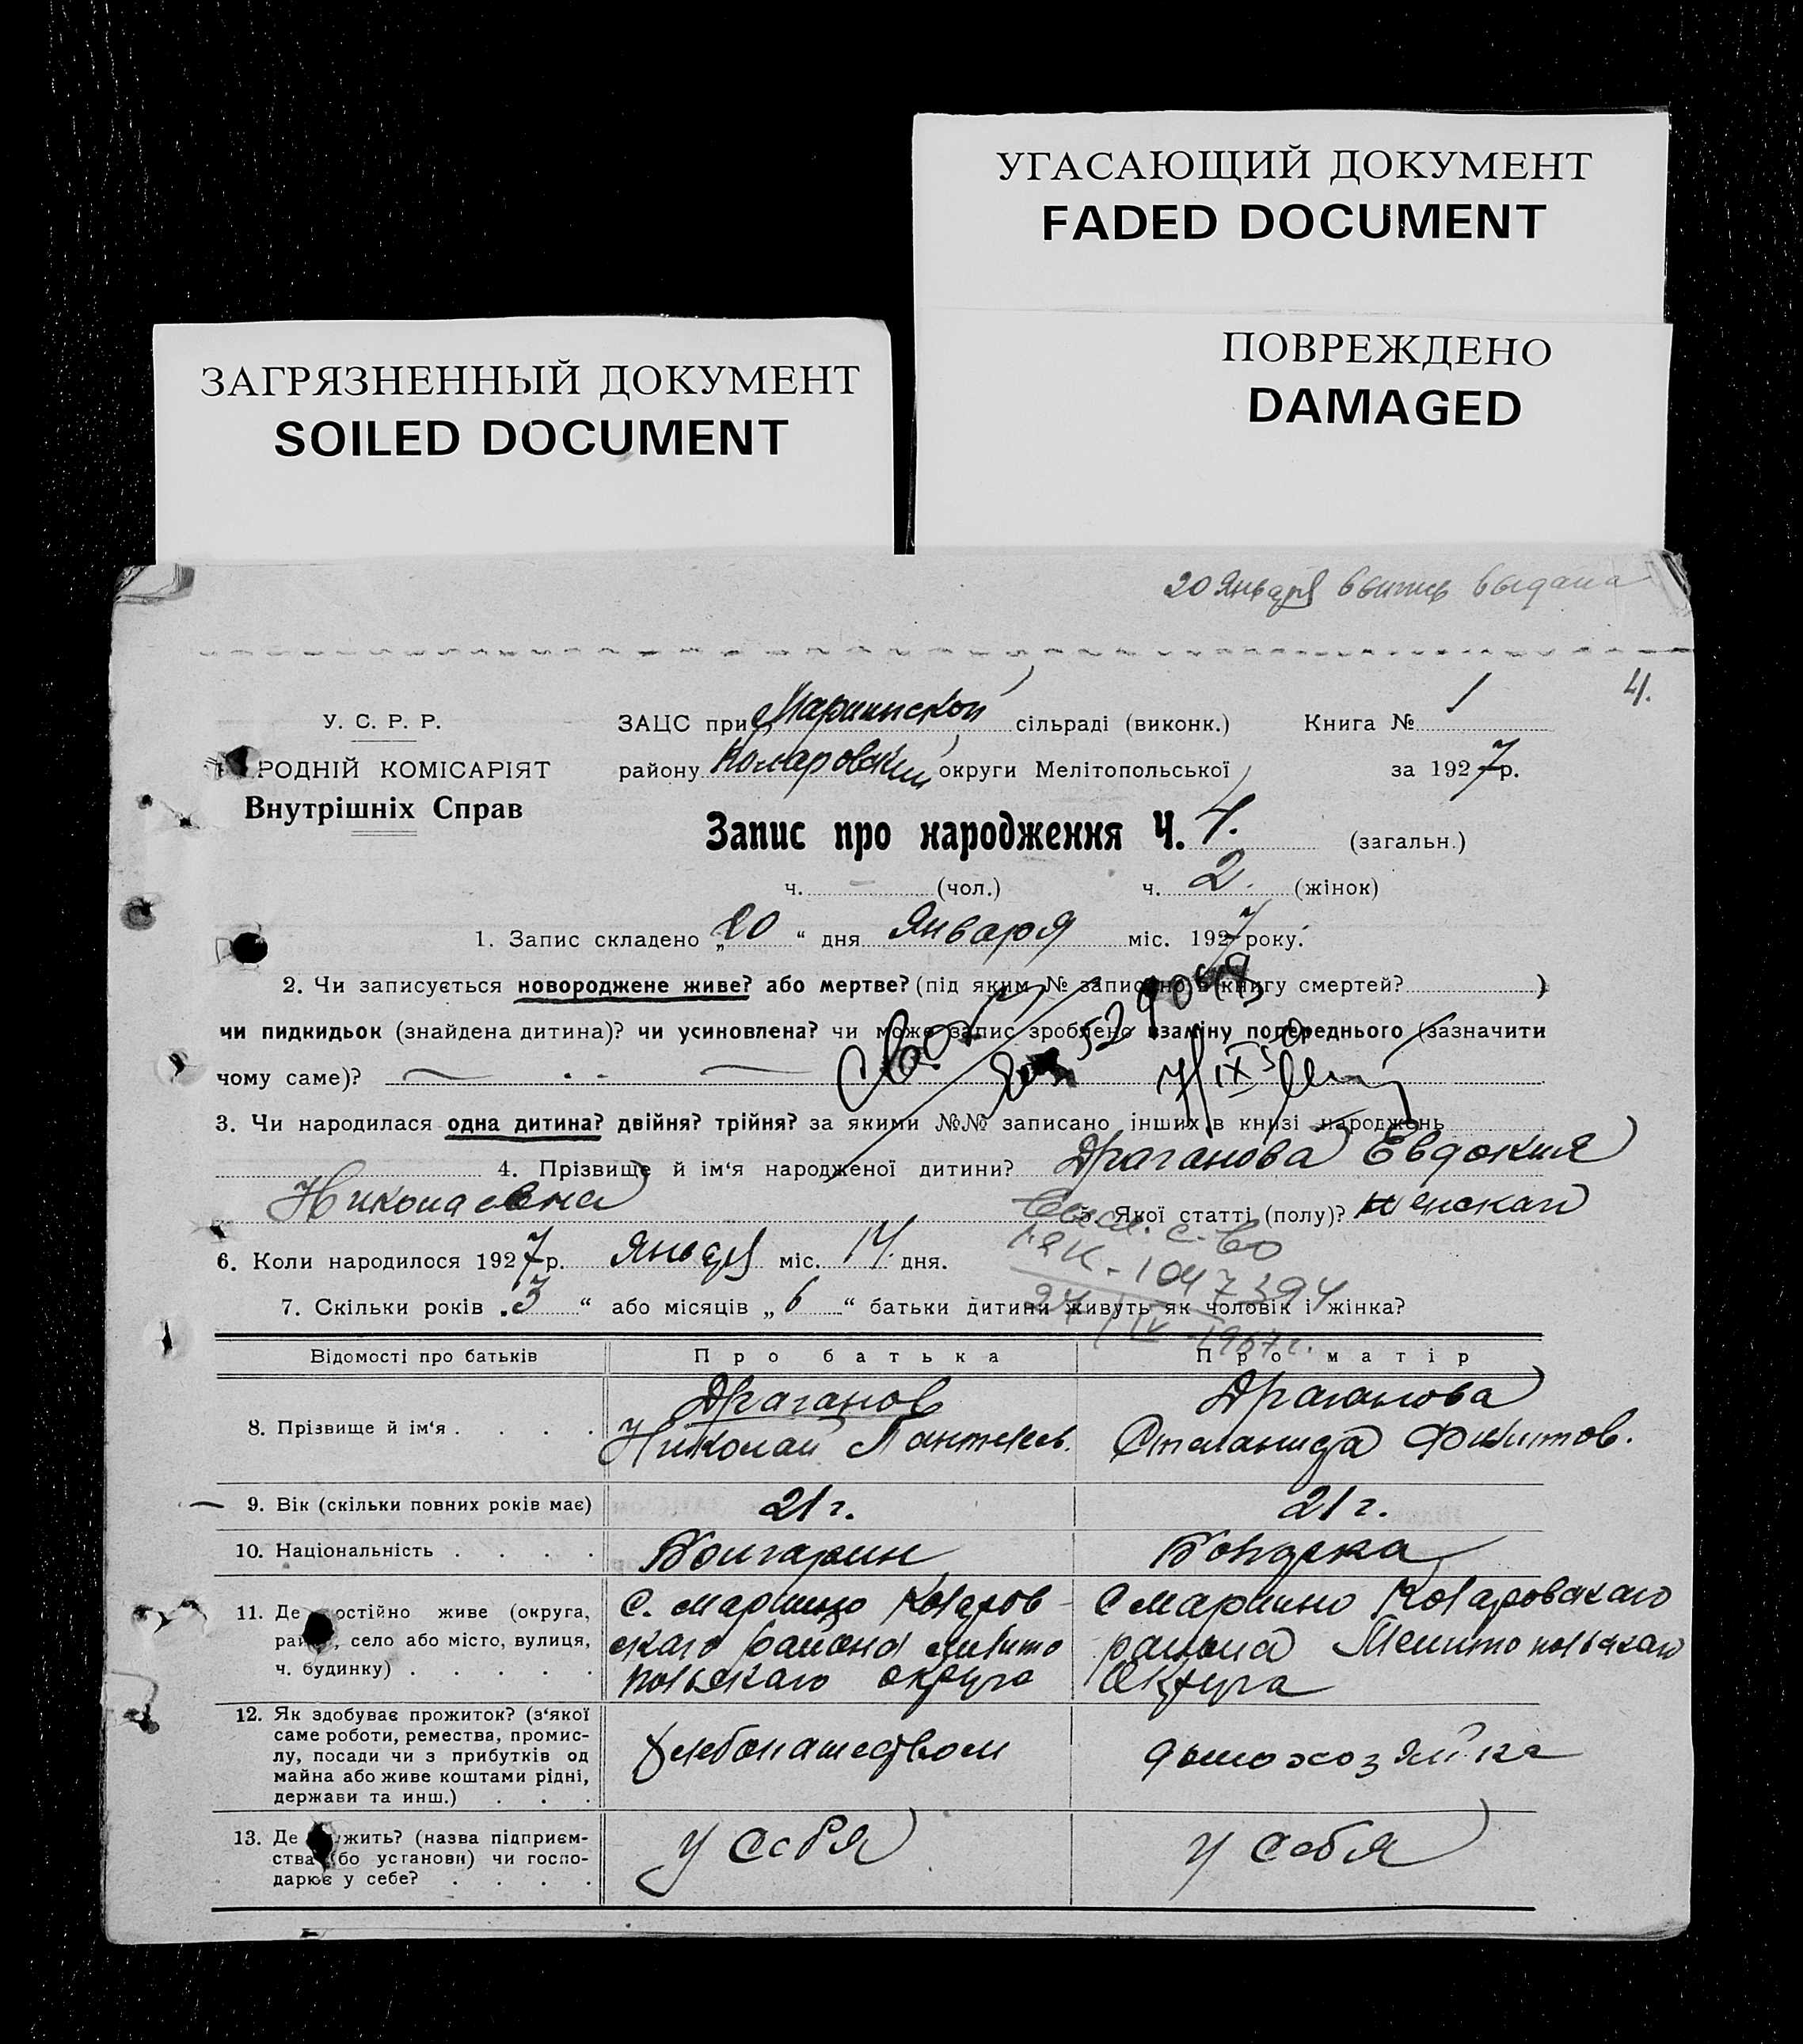 УГАСАЮЩИЙ ДОКУМЕНТ
FADED DOCUMENT
ПОВРЕЖДЕНО
DAMAGED
ЗАГРЯЗНЕННЫЙ ДОКУМЕНТ
SOILED DOCUMENT
20 Января выдана
4.
У. С. Р. Р.
РОДНІЙ КОМІСАРІЯТ
Внутрішніх Справ
ЗАЦС при Мариинской сільраді (виконк.) Книга № 1
району Коларовский округи Мелітопольської за 1927 р.
Запис про народження Ч. 4. (загальн.)
ч. – (чол.) ч. 2. (жінок)
1. Запис складено „20“ дня Января міс. 1927 року.
2. Чи записується новороджене живе? або мертве? (під яким № записано в книгу смертей? )
чи пидкидьок (знайдена дитина)? чи усиновлена? чи може запис зроблено взаміну попереднього (зазначити
чому саме)?
3. Чи народилася одна дитина? двійня? трійня? за якими №№ записано інших в книзі народжень
4. Прізвище й ім‘я народженої дитини? Драганова Евдокия
Николаевна 5. Якої статті (полу)? женская
6. Коли народилося 1927 р. Января міс. 14. дня.
7. Скільки років „3“ або місяців „6“ батьки дитини живуть як чоловік і жінка?
Відомості про батьків Про батька Про матір
8. Прізвище й ім‘я . . . . Драганов Драганова
Николай Пантелев. Степанида Филипов.
9. Вік (скільки повних років має) 21 г. 21 г.
10. Національність . . . . Болгарин Болгарка
11. Де постійно живе (округа, с. Марино Коларов- с Марино Коларовскаго
район, село або місто, вулиця, скаго района Мелито района Мелитопольскаго
ч. будинку) . . . . . польскаго округа Округа
12. Як здобуває прожиток? (з‘якої
саме роботи, ремества, промис-
лу, посади чи з прибутків од хлебопашеством домохозяйка
майна або живе коштами рідні,
держави та инш.) . . .
13. Де служить? (назва підприєм- у себя у себя
ства або установи) чи госпо-
дарює у себе? . . . .